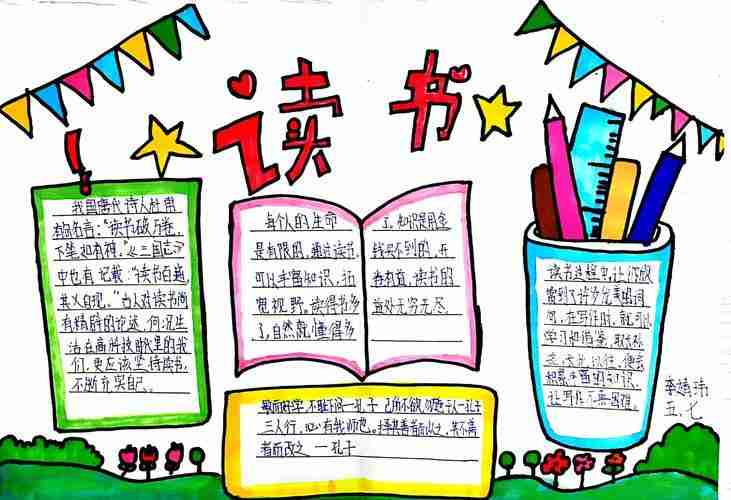 读书
我国唐代诗人杜甫
有句名言："读书破万卷,
下笔如有神。"《三国志》
中也有记载："读书百遍,
其义自现。"古人对读书尚
有精辟的论述,何况生
活在高科技时代里的我
们,更应该坚持读书,
不断充实自己。
每个人的生命
是有限的,通过读书,
可以丰富知识,拓
宽视野。读得书多
了,自然就懂得多
了,知识是用金
钱买不到的,开
卷有益,读书的
益处无穷无尽
读书过程中,让你
学习和借鉴,
积累丰富的知识,
让写作无
敏而好学,不耻下问—孔子 己所不欲,勿施于人—孔子
三人行,必有我师焉。择其善者而从之,其不善
者而改之 —孔子
李婧玮
五、七